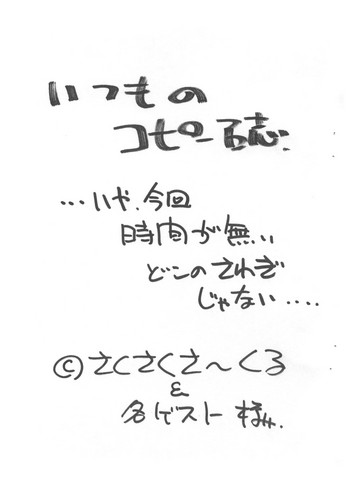 いつもの
コピー誌.
…いや、今回
時間が無い
どこのさわぎ
じゃない‥‥
©さくさくさ〜くる
&
各ゲスト様.